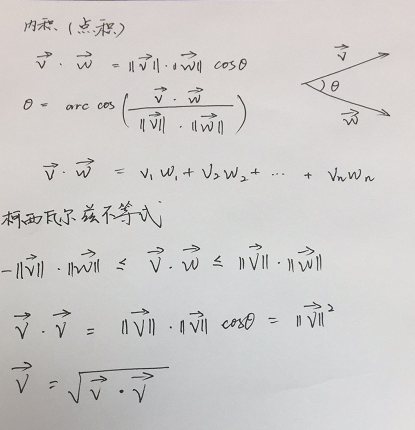 内积（点积）
v⃗ · w⃗ = ||v⃗|| · ||w⃗|| cosθ
v⃗
θ = arc cos( (v⃗ · w⃗) / (||v⃗|| · ||w⃗||) )
θ
w⃗
v⃗ · w⃗ = v₁w₁ + v₂w₂ + ··· + vₙwₙ
柯西瓦尔兹不等式
-||v⃗|| · ||w⃗|| ≤ v⃗ · w⃗ ≤ ||v⃗|| · ||w⃗||
v⃗ · v⃗ = ||v⃗|| · ||v⃗|| cosθ = ||v⃗||²
v⃗ = √(v⃗ · v⃗)